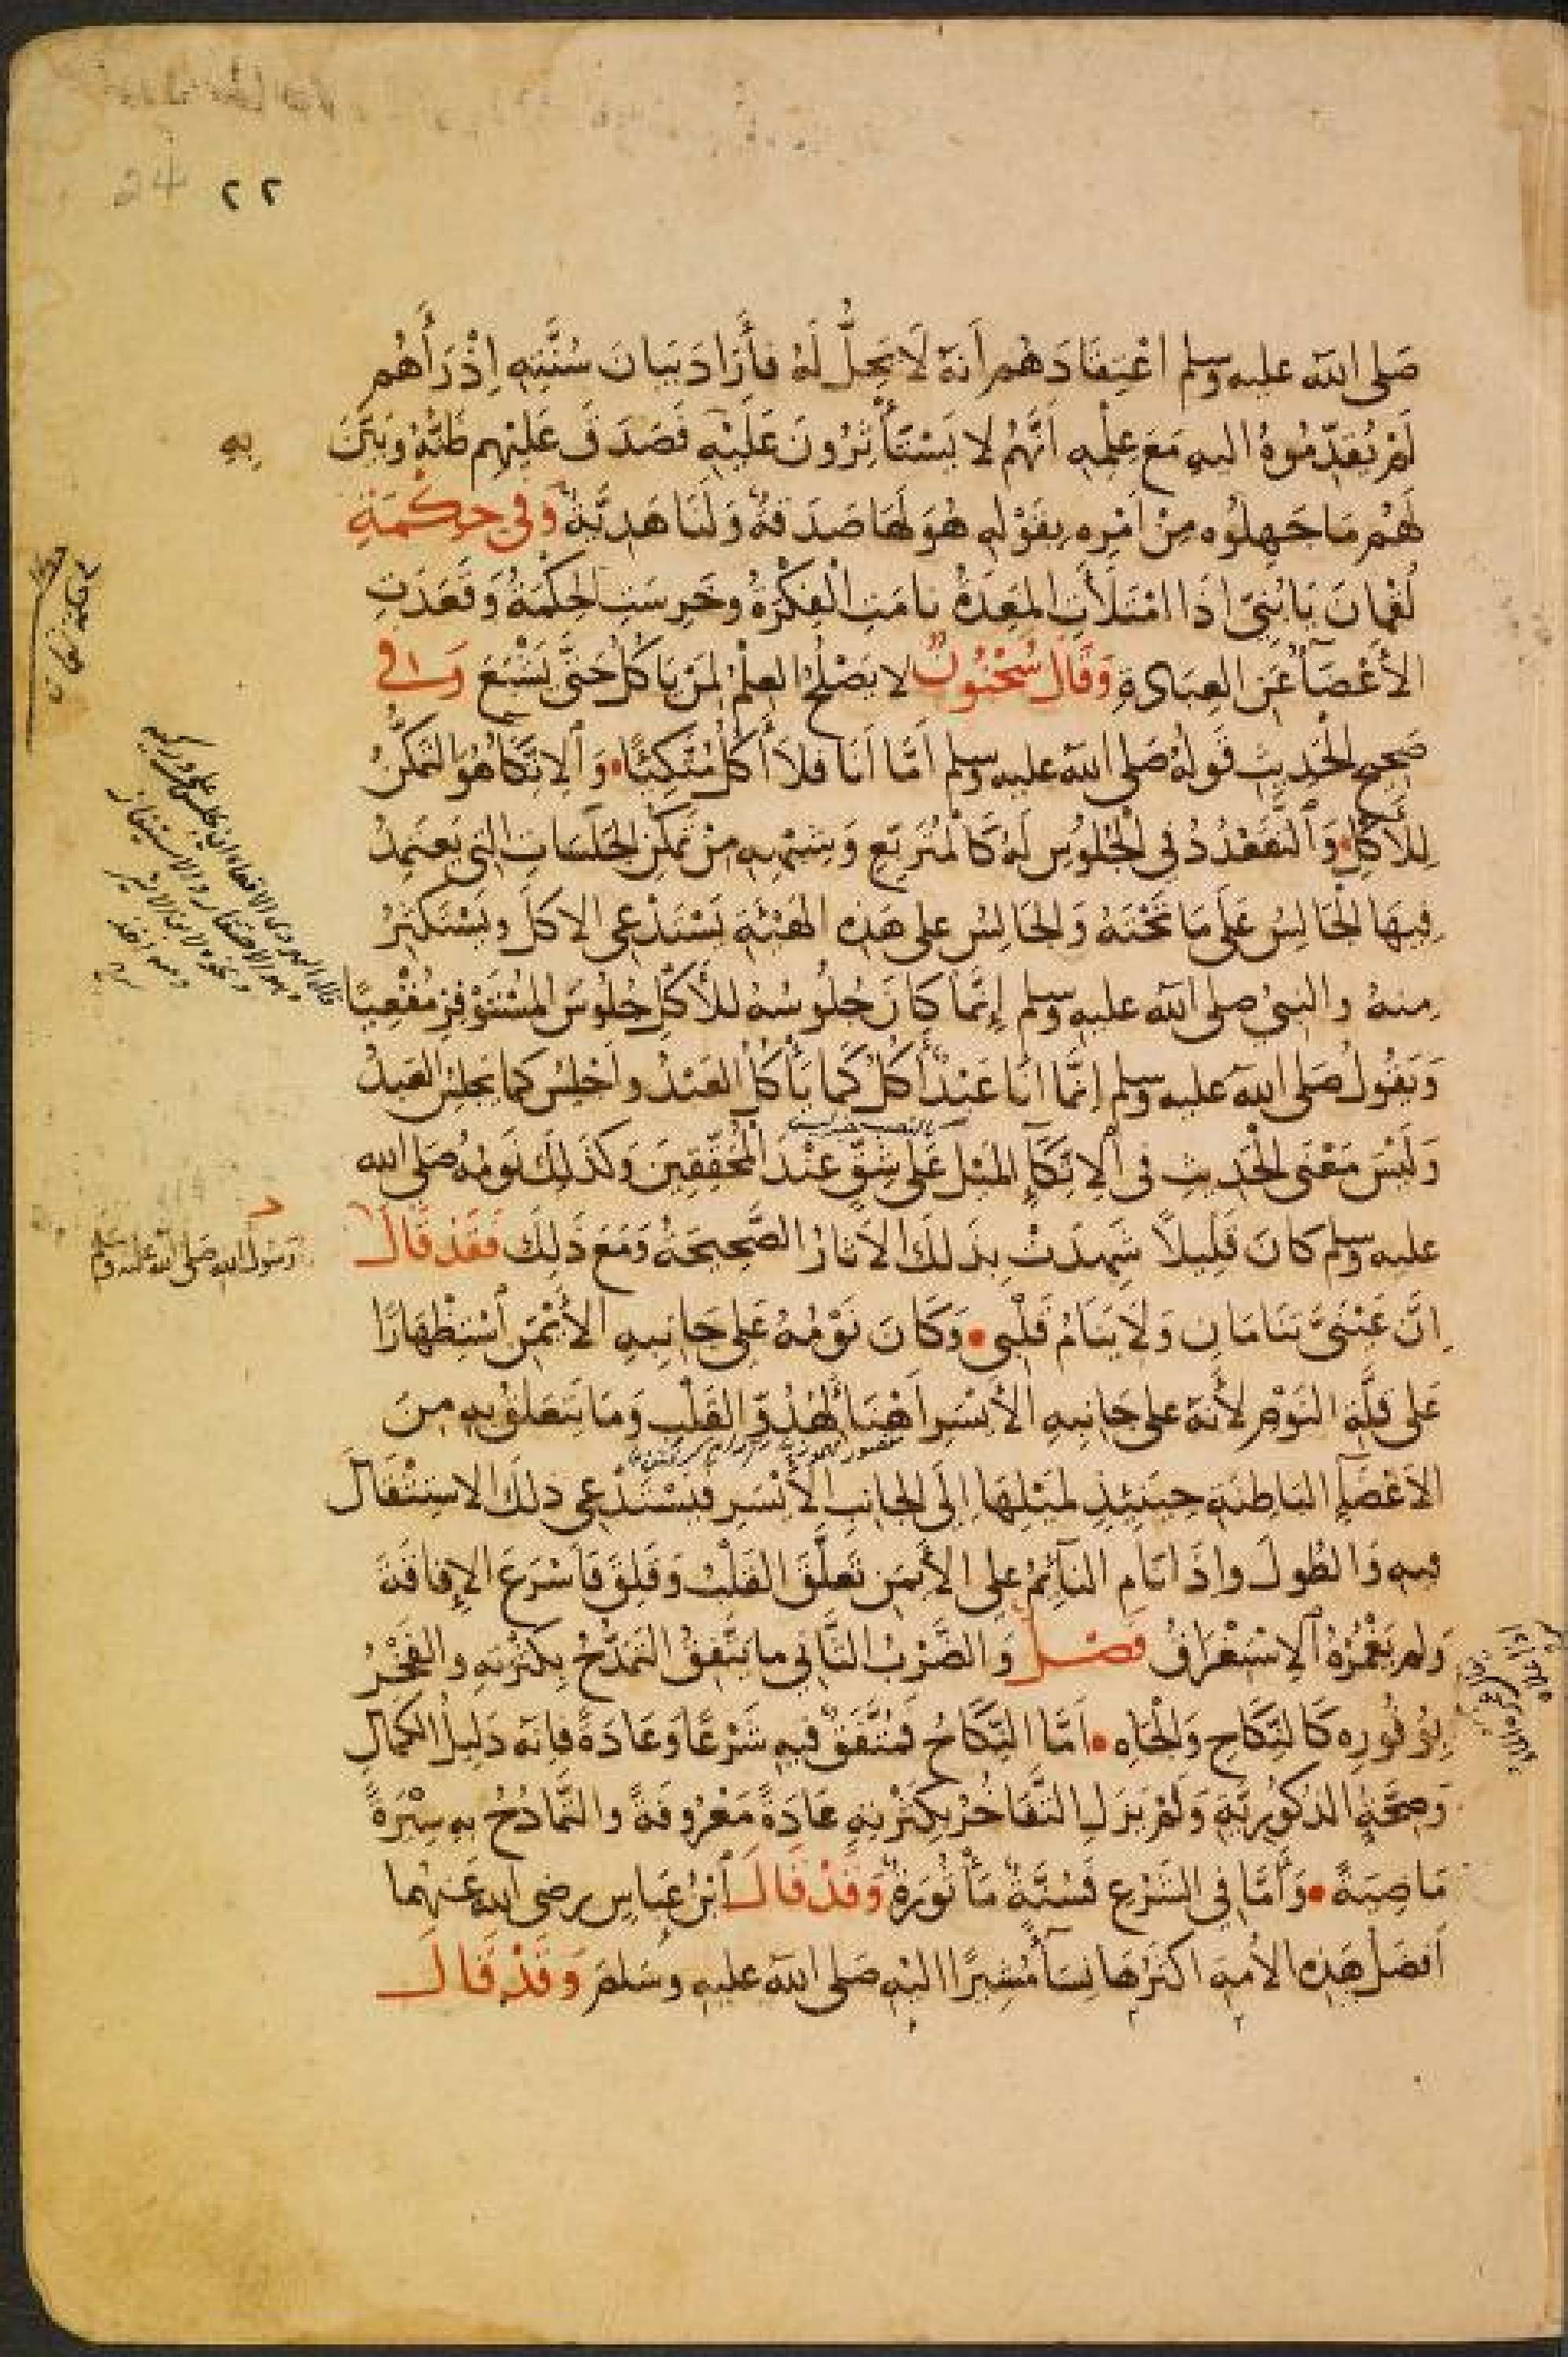 ٢٢
24
صَلى الله عليه وسلم اعْتِقَادَهُم أنهُ لَا يَحِلُّ لَهُ فأَرَادَ بَيَانَ سُنَّتِهِ اِذْ رَأَهُم
لَمْ يُقَدِّمُوهُ اليهِ مَعَ عِلْمِهِ اَنَّهُمْ لا يَسْتَأْثِرُونَ عَلَيْهِ فَصَدَقَ عَلَيْهِم ظَنُّهُ وَبَيَّنَ
بِهِ
لَهُمْ مَا جَهِلُوه مِنْ اَمْرِه بِقَوْلِهِ هُوَ لَهَا صَدَقةٌ وَلَنَا هَدِيَّةٌ وَفى حِكْمَةِ
لُقْمَانَ يَا بُنَىَّ اِذَا امْتَلَأَتِ المَعِدَةُ نامَتِ الْفِكْرَةُ وخَرِسَتِ الحِكْمَةُ وَقَعَدَتِ
الأَعْضَآءُ عَنِ العِبَادةِ وَقَالَ سُحْنُونٌ لا يَصْلُحُ العِلْمُ لِمَنْ يَاكُلُ حَتَّى يَشْبَعَ وَفى
صَحِيحِ الْحَدِيثِ قَولُهُ صَلى الله عليه وسلم اَمَّا اَنَا فلاَ أَكُلُ مُتَّكِئًا وَالاِتِّكَاءُ هُوَ التَّمَكُّنُ
لِلْأَكْلِ وَالتَّقَعْدُدُ فى الْجُلُوسِ لَهُ كَالْمُتَرَبِّعِ وَشبْهِهِ مِنْ تَمَكُّنِ الجَلَسَاتِ التى يَعتَمِدُ
فِيهَا الْجَالِسُ عَلَى مَا تَحْتَهُ وَالجَالِسُ على هَذِه الهَيْئَةِ يَسْتَدْعى الاكلَ ويَسْتكثِرُ
مِنهُ والنبىُّ صلى الله عليه وسلم إنَّمَا كَانَ جُلُوسُهُ للأَكْلِ جُلُوسَ المُسْتَوْفِزِ مُقْعِيًا
وَيَقُولُ صَلى الله عليه وسلم اِنَّمَا انَا عَبْدٌ أَكُلُ كَمَا يَأْكُلُ العَبْدُ واَجْلِسُ كما يَجلِسُ العَبدُ
وَلَيْسَ مَعْنَى الْحَدِيثِ فى الاِتِّكَآءِ المَيْلَ عَلى شِقٍّ عِنْدَ الْمُحَقِّقِينَ وَكَذَلِكَ نَومُهُ صَلى الله
عليه وسلم كانَ قَلِيلاً شَهِدَتْ بِذَلكَ الآثارُ الصَّحِيحَةُ وَمَعَ ذَلِكَ فَقَدْ قَالَ
رَسُولُ اللهِ صَلى الله عليه وسلم
اِنَّ عَيْنَىَّ تَنَامَانِ وَلَا يَنَامُ قَلْبى وَكَانَ نَوْمُهُ عَلى جَانِبِهِ الأَيْمَنِ اسْتِظْهَارًا
عَلى قِلَّةِ النَوْمِ لأَنهُ على جَانِبهِ الأَيْسَرِ اَهْنَأُ لِهُدُوِّ القَلْبِ وَمَا يَتَعَلقُ بِهِ مِنَ
الأَعْضَآءِ البَاطِنَةِ حِينَئِذٍ لِمَيْلِهَا اِلَى الجانِبِ الأَيْسَرِ فيَسْتَدْعى ذلكَ الاسْتِثْقَالَ
فيهِ وَالطُولَ واذَا نَامَ النآئِمُ على الأَيمَنِ تَعلَّقَ القَلْبُ وَقَلِقَ فَاَسْرَعَ الإفاقَةَ
وَلم يَغْمُرْهُ الاِسْتِغرَاقُ فَصْلٌ وَالضَّرْبُ الثَّانى ما يَتَّفِقُ التَمَدُّحُ بِكَثْرَتِهِ والفَخْرُ
بِوُفُورِه كَالنِّكَاحِ وَالْجَاهِ اَمَّا النِّكَاحُ فَمُتَّفَقٌ فيهِ شَرْعًا وَعَادَةً فانهُ دَلِيلُ الكَمَالِ
وَصِحَّةِ الذكُورِيَّةِ وَلَمْ يَزَلِ التَّفَاخُرُ بكَثْرَتِهِ عَادَةً مَعْرُوفَةً والتَّمَادُحُ به سِيْرَةً
مَاضِيَةً وَأَمَّا فى الشَرْعِ فَسُنَّةٌ مَأْثُورَةٌ وَقَدْ قَالَ ابنُ عَبَّاسٍ رضى الله عَنهُما
اَفضَلُ هَذِه الأُمةِ اكثَرُهَا نِسَآءً مُشِيرًا اليْهِ صَلى الله عليهِ وسَلمَ وَقَدْ قَالَ